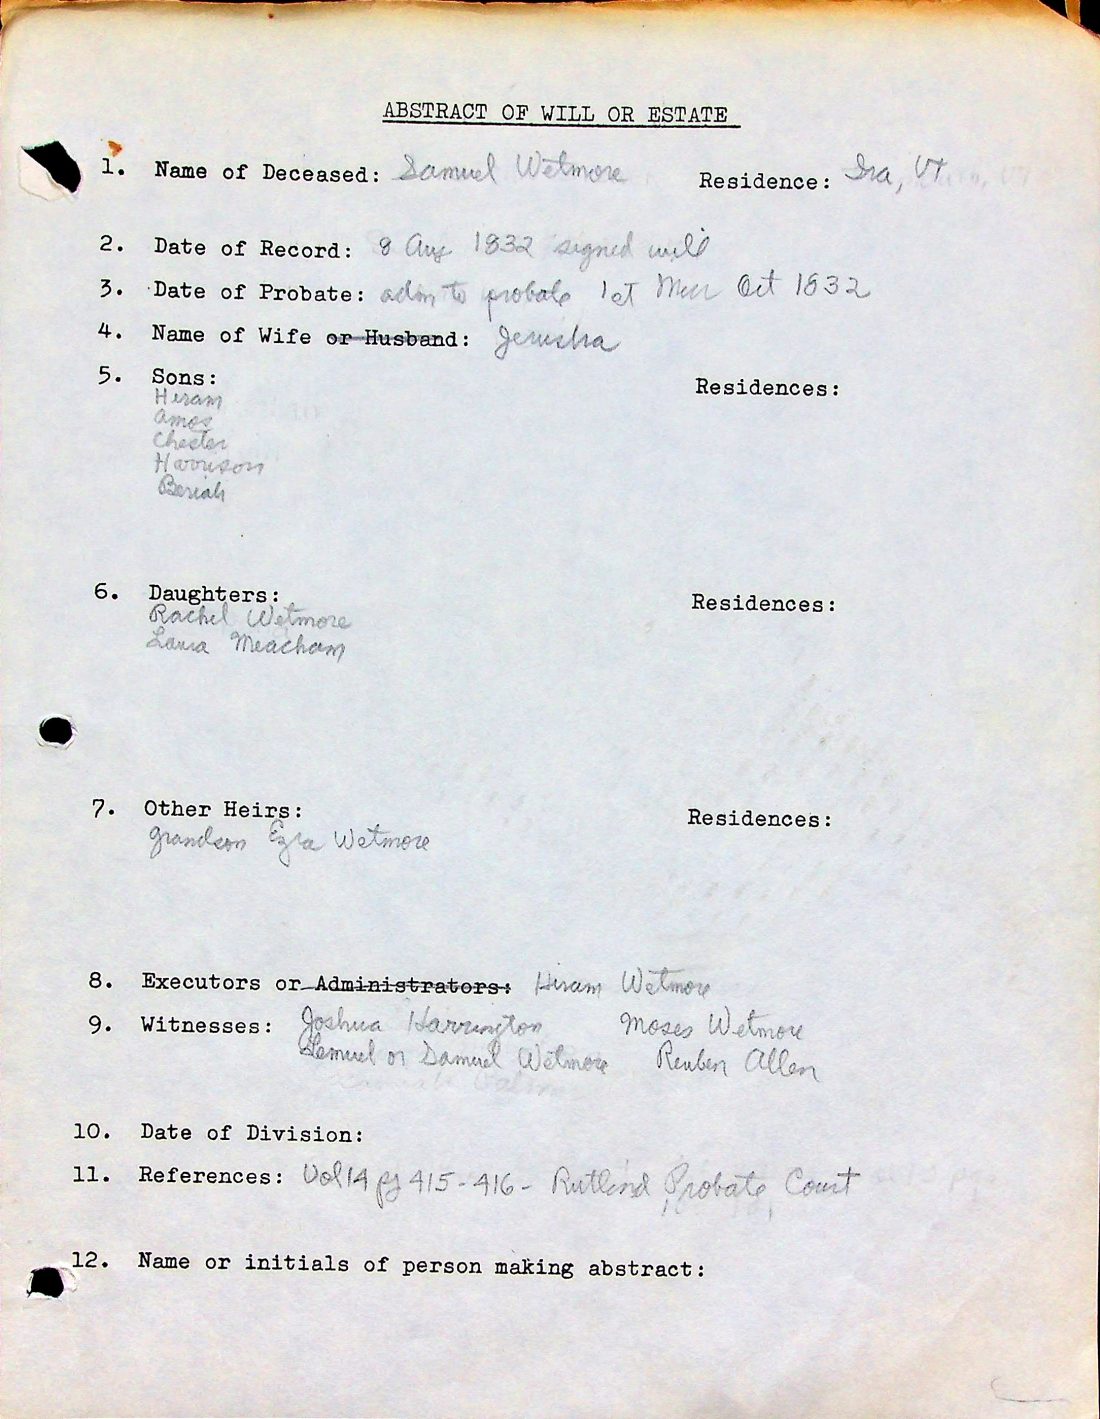 ABSTRACT OF WILL OR ESTATE
1. Name of Deceased: Samuel Wetmore Residence: Ira, VT
2. Date of Record: 8 Aug 1832 signed will
3. Date of Probate: adm to probate 1st Mon Oct 1832
4. Name of Wife or Husband: Jerusha
5. Sons: Residences:
Hiram
Amos
Chester
Harrison
Beriah
6. Daughters: Residences:
Rachel Wetmore
Laura Meacham
7. Other Heirs: Residences:
grandson Ezra Wetmore
8. Executors or Administrators: Hiram Wetmore
9. Witnesses: Joshua Harrington Moses Wetmore
Lemuel or Samuel Wetmore Reuben Allen
10. Date of Division:
11. References: Vol 14 pg 415-416- Rutland Probate Court
12. Name or initials of person making abstract: